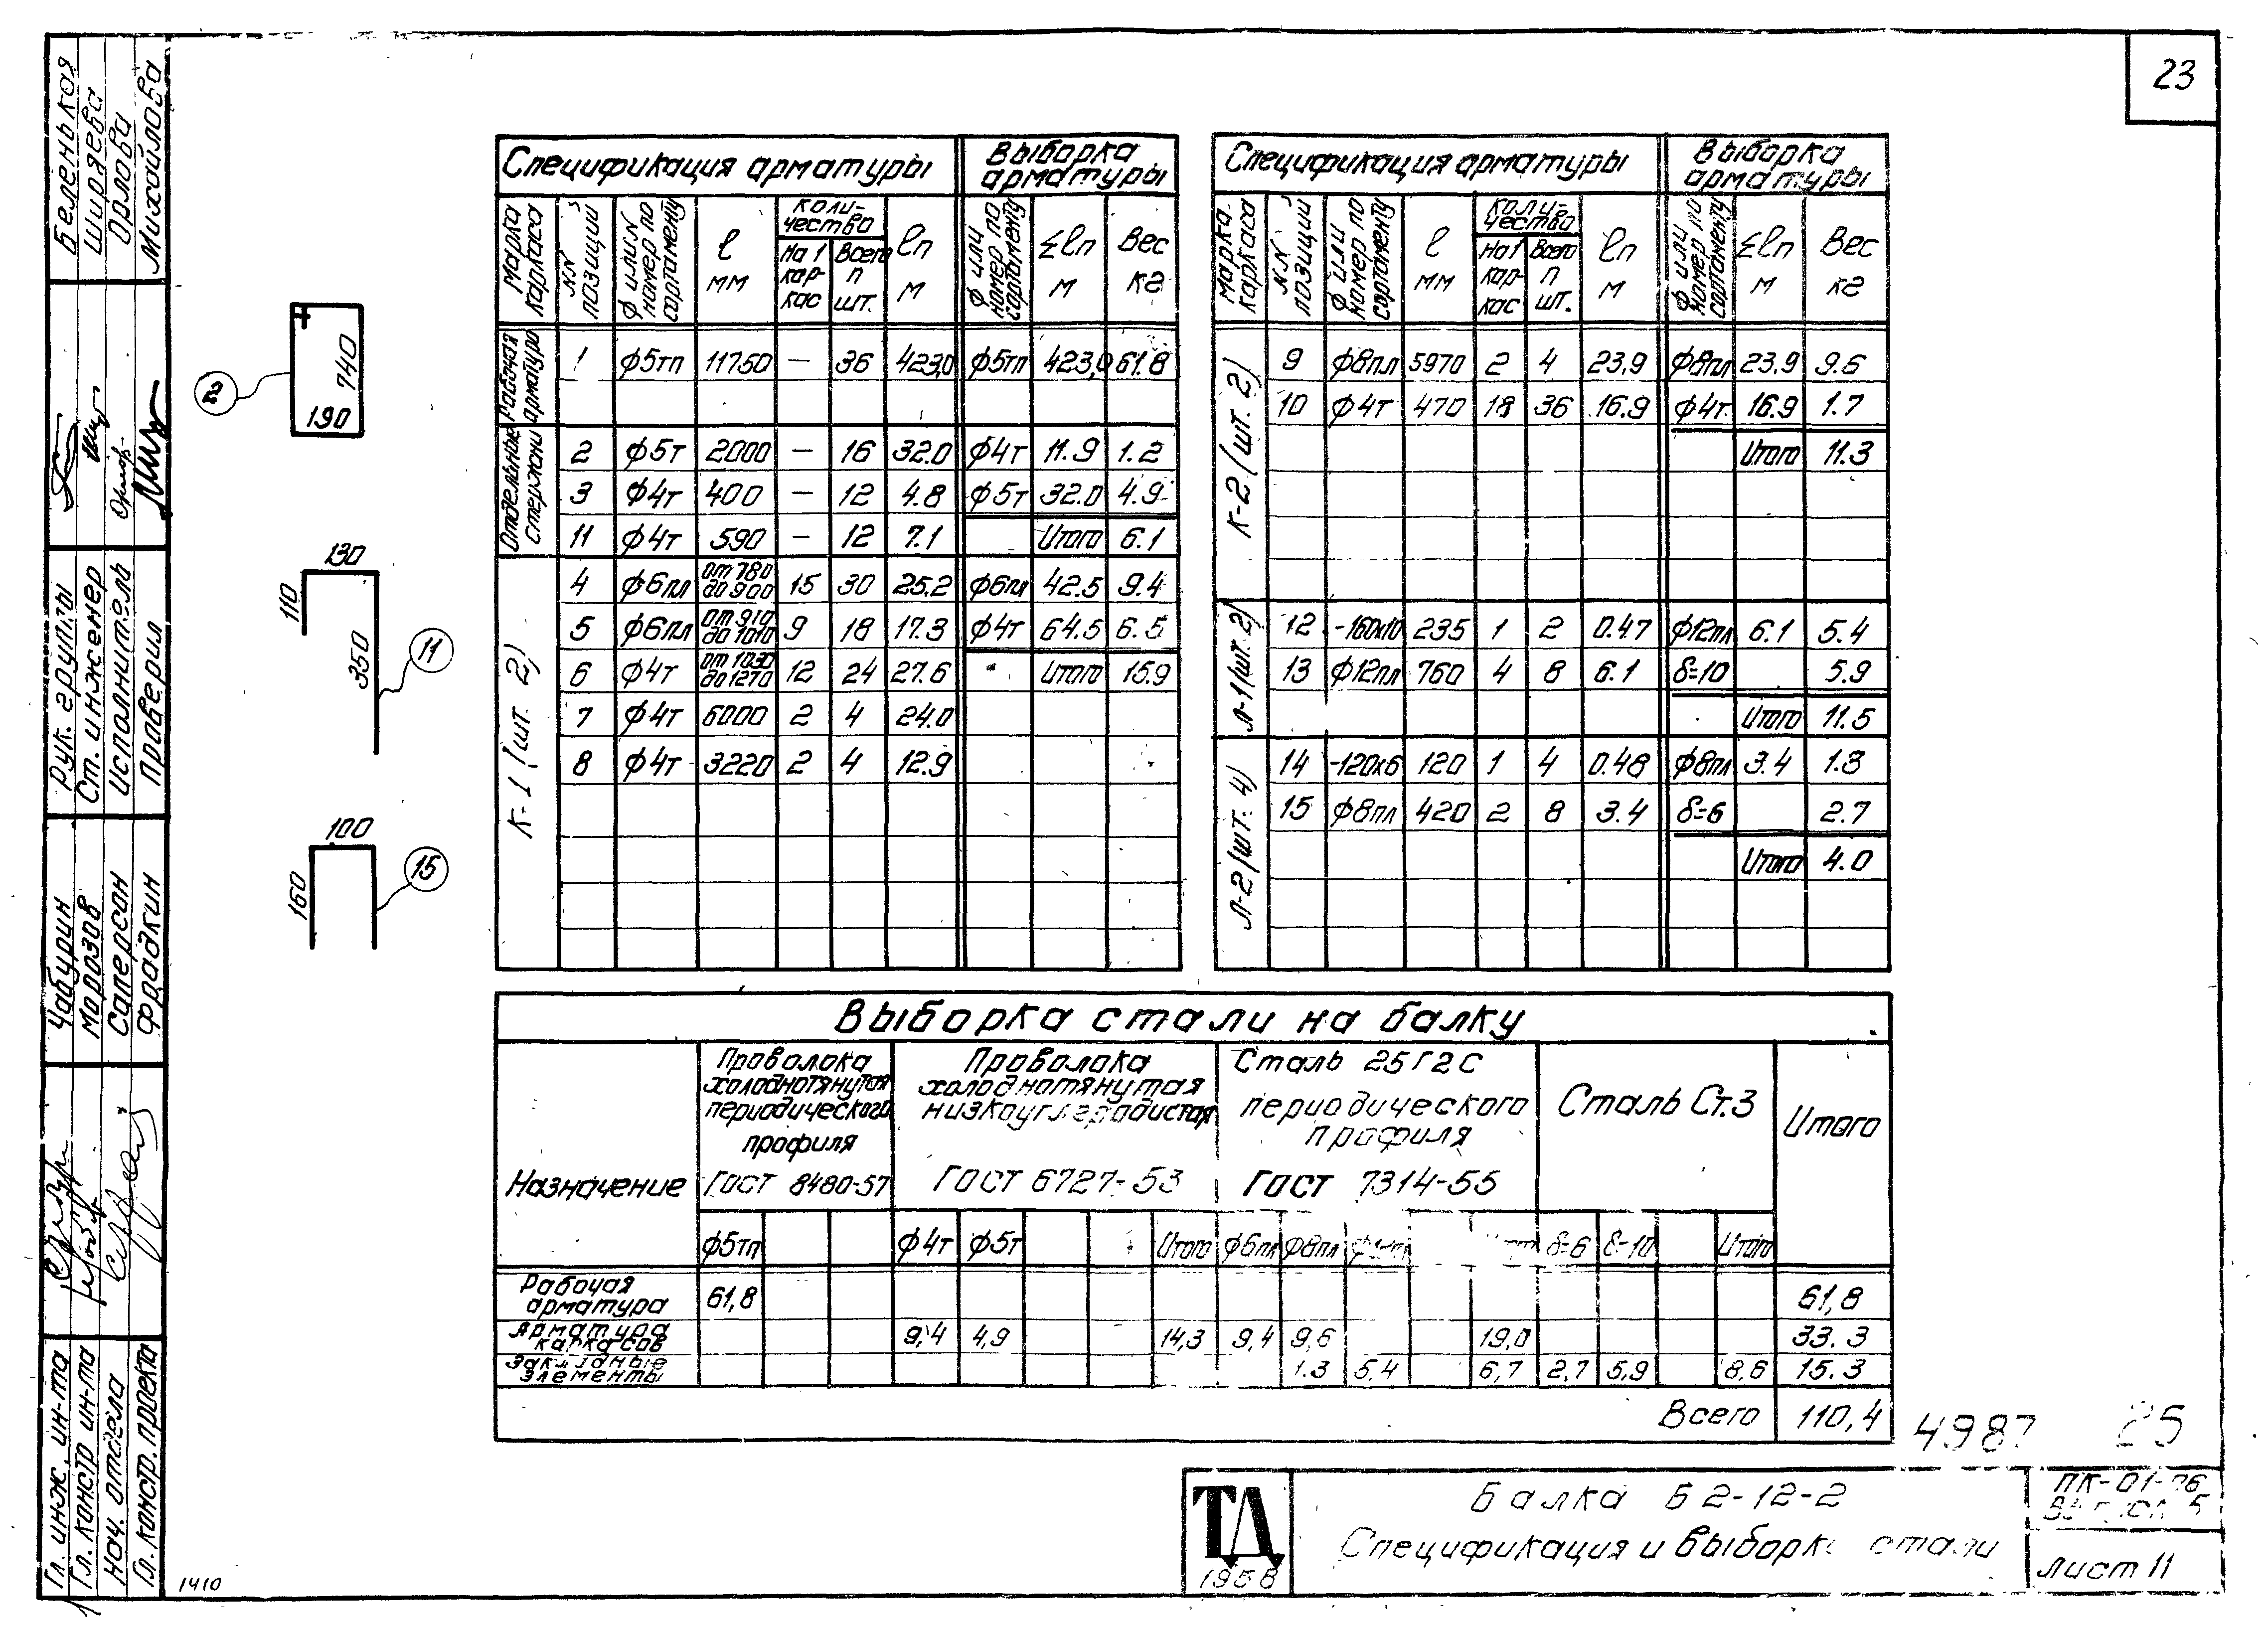 23
Беленькая
Ширяева
Орлова
Михайлова
Рук. группы
Ст. инженер
Исполнитель
Проверил
Чабурин
Морозов
Саперсон
Фрадкин
Гл. инж. ин-та
Гл. констр ин-та
Нач. отдела
Гл. констр. проекта
1410
2
740
190
130
110
350
11
100
160
15
Спецификация арматуры Выборка арматуры
Марка каркаса NN позиции ϕ или N номер по сортаменту ℓ мм Количество На 1 каркас Всего п шт. ℓп м ϕ или номер по сортаменту Σℓп м Вес кг
Рабочая арматура
1 ϕ5тп 11750 — 36 423,0 ϕ5тп 423,0 61.8
Отдельные стержни
2 ϕ5т 2000 — 16 32.0 ϕ4т 11.9 1.2
3 ϕ4т 400 — 12 4.8 ϕ5т 32.0 4.9
11 ϕ4т 590 — 12 7.1 Итого 6.1
К-1 (шт. 2)
4 ϕ6пл от 780 до 900 15 30 25.2 ϕ6пл 42.5 9.4
5 ϕ6пл от 910 до 1010 9 18 17.3 ϕ4т 64.5 6.5
6 ϕ4т от 1030 до 1270 12 24 27.6 Итого 15.9
7 ϕ4т 6000 2 4 24.0
8 ϕ4т 3220 2 4 12.9
Спецификация арматуры Выборка арматуры
Марка каркаса NN позиции ϕ или номер по сортаменту ℓ мм Количество На 1 каркас Всего п шт. ℓп м ϕ или номер по сортаменту Σℓп м Вес кг
К-2 (шт. 2)
9 ϕ8пл 5970 2 4 23,9 ϕ8пл 23,9 9.6
10 ϕ4т 470 18 36 16.9 ϕ4т 16.9 1.7
Итого 11.3
Л-1 (шт. 2)
12 -160x10 235 1 2 0.47 ϕ12пл 6.1 5.4
13 ϕ12пл 760 4 8 6.1 δ=10 5.9
Итого 11.5
Л-2 (шт. 4)
14 -120x6 120 1 4 0.48 ϕ8пл 3.4 1.3
15 ϕ8пл 420 2 8 3.4 δ=6 2.7
Итого 4.0
Выборка стали на балку
Назначение
Проволока
холоднотянутая
периодического
профиля
ГОСТ 8480-57
Проволока
холоднотянутая
низкоуглеродистая
ГОСТ 6727-53
Сталь 25Г2С
периодического
профиля
ГОСТ 7314-55
Сталь Ст.3
Итого
ϕ5тп ϕ4т ϕ5т Итого ϕ6пл ϕ8пл δ=6 δ=10 Итого
Рабочая арматура 61,8 61,8
Арматура каркасов 9,4 4,9 14,3 9,4 9,6 19,0 33.3
Закладные элементы 1.3 5.4 6,7 2,7 5,9 8,6 15.3
Всего 110,4
4987 25
ТД
1958
Балка Б2-12-2
Спецификация и выборка стали
ПК-01-06
Лист 11